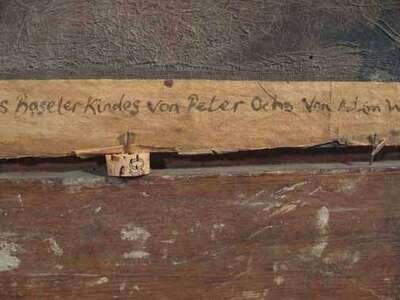 s Baseler Kindes von Peter Ochs von Adam W